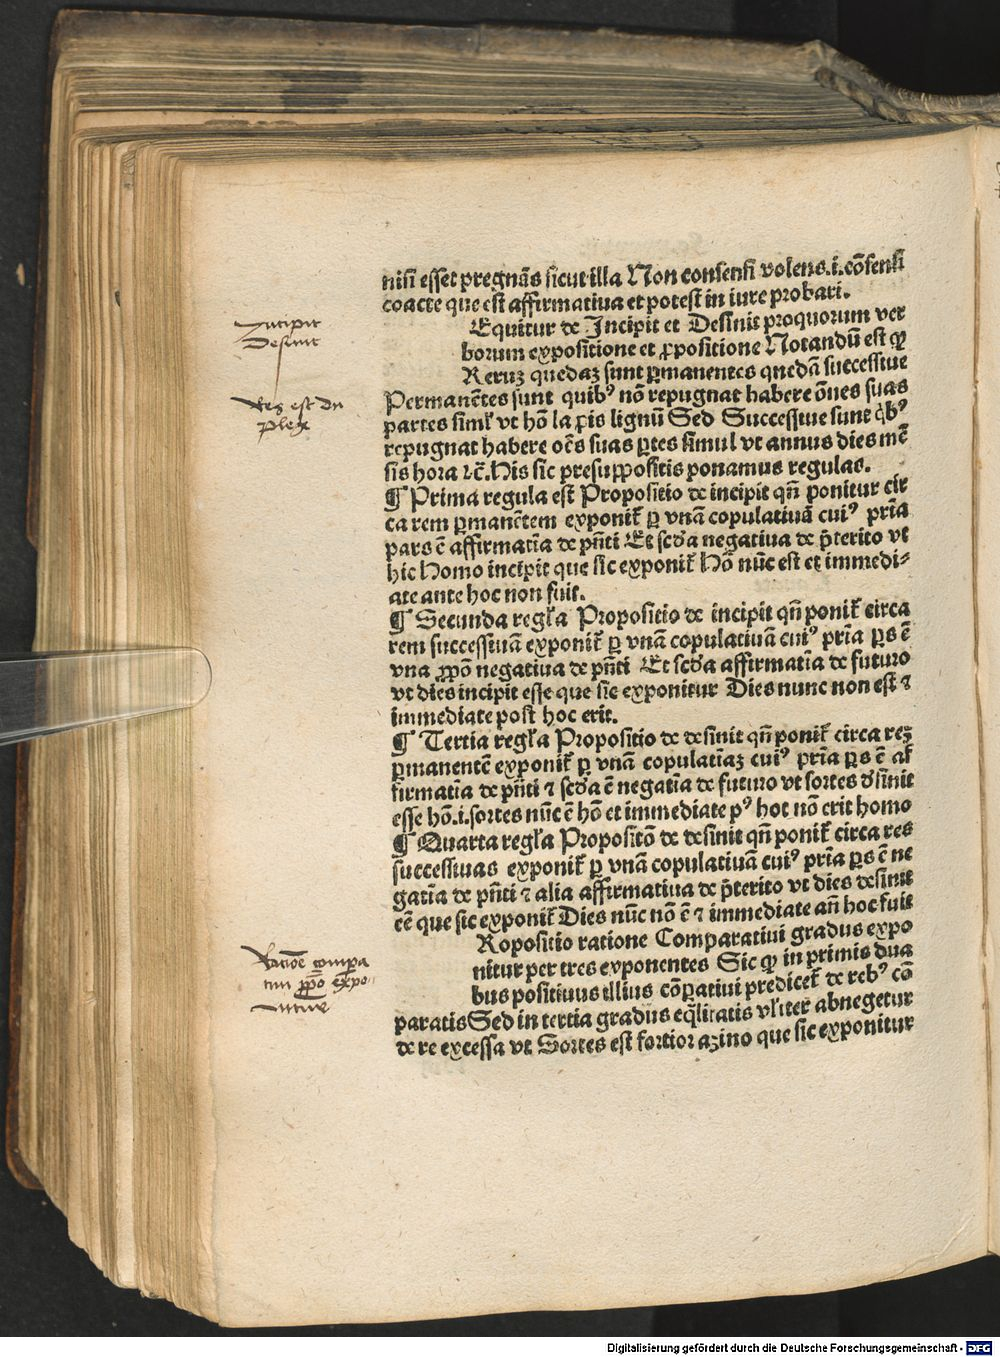 nisi esset pregnãs sicut illa Non consensi volens.i.cõsensi
coacte que est affirmatiua et potest in iure probari.
Equitur de Incipit et Desinit proquorum ver
borum expositione et ꝓpositione Notandũ est ꝙ
Reruꝫ quedaꝫ sunt ꝑmanentes quedã successiue
Permanẽtes sunt quibꝰ nõ repugnat habere õnes suas
partes siml̓ vt hõ la ꝑis lignũ Sed Successiue sunt q̃bꝰ
repugnat habere oẽs suas ꝑtes simul vt annus dies mẽ
sis hora ⁊c̃. His sic presuꝓpositis ponamus regulas.
¶ Prima regula est Propositio de incipit qñ ponitur cir
ca rem ꝑmanẽtem exponit̃ ꝑ vnã copulatiuã cuiꝰ pria̅
pars ẽ affirmatia̅ de pñti Et scd̓a negatiua de p̃terito vt
hic Homo incipit que sic exponit̃ Hõ nũc est et immedi⸗
ate ante hoc non fuit.
¶ Secunda regl̓a Propositio de incipit qñ ponit̃ circa
rem successiuã exponit̃ ꝑ vnã copulatiuã cuiꝰ pria̅ ꝑs ẽ
vna ꝓpõ negatiua de pñti Et scd̓a affirmatia̅ de futuro
vt dies incipit esse que sic exponitur Dies nunc non est ⁊
immediate post hoc erit.
¶ Tertia regl̓a Propositio de desinit qñ ponit̃ circa reꝫ
ꝑmanentẽ exponit̃ ꝑ vnã copulatia̅ꝫ cuiꝰ pria̅ ꝑs ẽ af
firmatia̅ de pñti ⁊ scd̓a ẽ negatia̅ de futuro vt sortes d̓sinit
esse hõ.i.sortes nũc ẽ hõ et immediate pꝰ hoc nõ erit homo
¶ Quarta regl̓a Propositõ de desinit qñ ponit̃ circa res
successiuas exponit̃ ꝑ vnã copulatiuã cuiꝰ pria̅ ꝑs ẽ ne
gatia̅ de pñti ⁊ alia affirmatiua de p̃terito vt dies desinit
eẽ que sic exponit̃ Dies nũc nõ ẽ ⁊ immediate añ hoc fuit
Ropositio ratione Comparatiui gradus expo
nitur per tres exponentes Sic ꝙ in primis dua
bus positiuus illius cõꝑatiui predicet̃ de rebꝰ cõ
paratis Sed in tertia gradus eq̃litatis vl̓iter abnegetur
de re excessa vt Sortes est fortior azino que sic exponitur
Incipit
Desinit
Res est du
plex
Ratiõe compa
tiui ꝓpõ expo
nitur
Digitalisierung gefördert durch die Deutsche Forschungsgemeinschaft - DFG